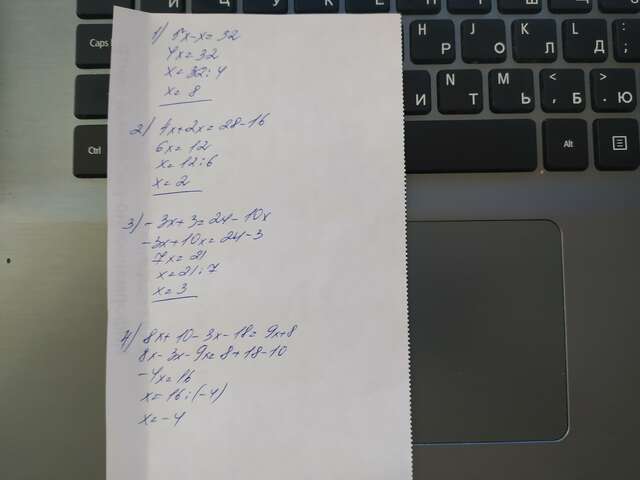 Й Ц Ш
Caps
H Р J О K Л L Д : ;
N Т M Ь < , Б > . Ю
И
Ctrl
Alt
1) 5x-x=32
4x=32
x=32:4
x=8
2) 4x+2x=28-16
6x=12
x=12:6
x=2
3) -3x+3=24-10x
-3x+10x=24-3
7x=21
x=21:7
x=3
4) 8x+10-3x-18=9x+8
8x-3x-9x=8+18-10
-4x=16
x=16:(-4)
x=-4